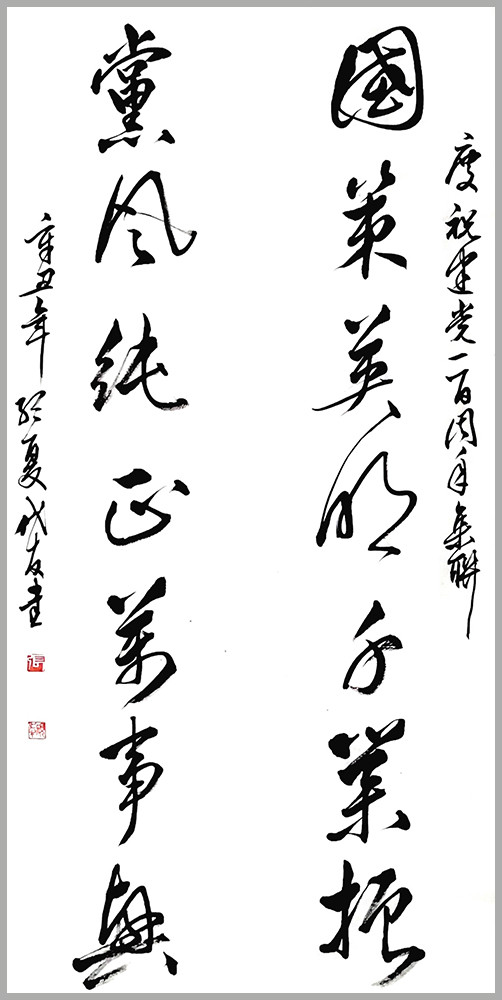 慶祝建党一百周年集聯
國策英明千業振
黨風純正萬事興
辛丑年於夏代友書